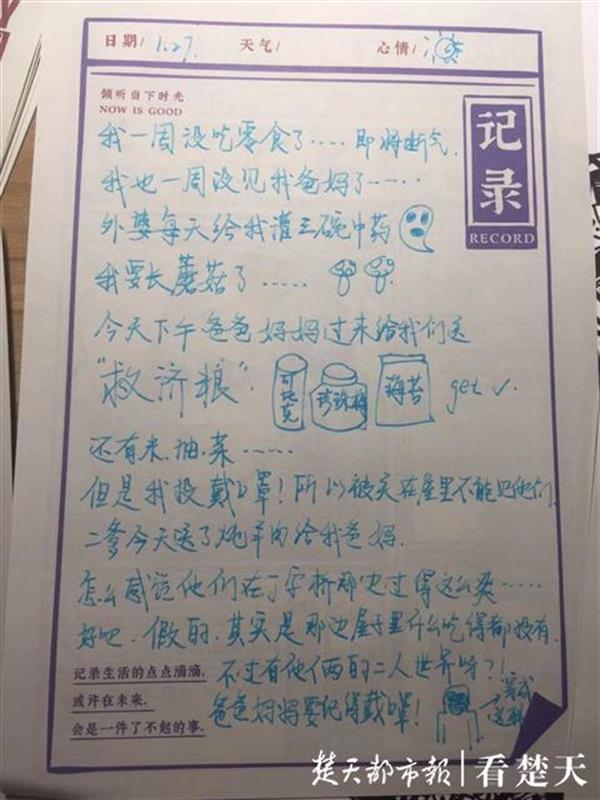 日期/ 1.27. 天气/ 心情/
倾听当下时光
NOW IS GOOD
记录
RECORD
我一周没吃零食了..... 即将断气.
我也一周没见我爸妈了.....
外婆每天给我灌三碗中药
我要长蘑菇了.....
今天下午爸爸妈妈过来给我们送
"救济粮". 可比克 珍珠梅 海苔 get ✓.
还有米.油.菜.....
但是我没戴口罩!所以被关在屋里不能见他们.
二爹今天送了炖羊肉给我爸妈.
怎么感觉他们在丁字桥那边过得这么爽.....
好吧.假的.其实是那边屋子里什么吃得都没有.
不过有他们俩的二人世界呀?!
爸爸妈妈要记得戴罩!
记录生活的点点滴滴,
或许在未来,
会是一件了不起的事.
楚天都市报|看楚天